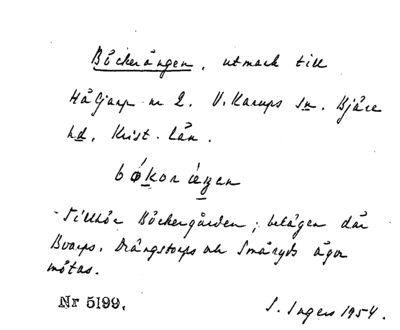 Böckerängen, utmark till
Håljarp nr 2. V. Karups sn. Bjäre
hd, Krist. län.
bókor ä́ngen
Tillhör Böckergården; belägen där
Boarps, Drängstorps och Småryds ägor
mötas.
Nr 5199. S. Ingers 1954.